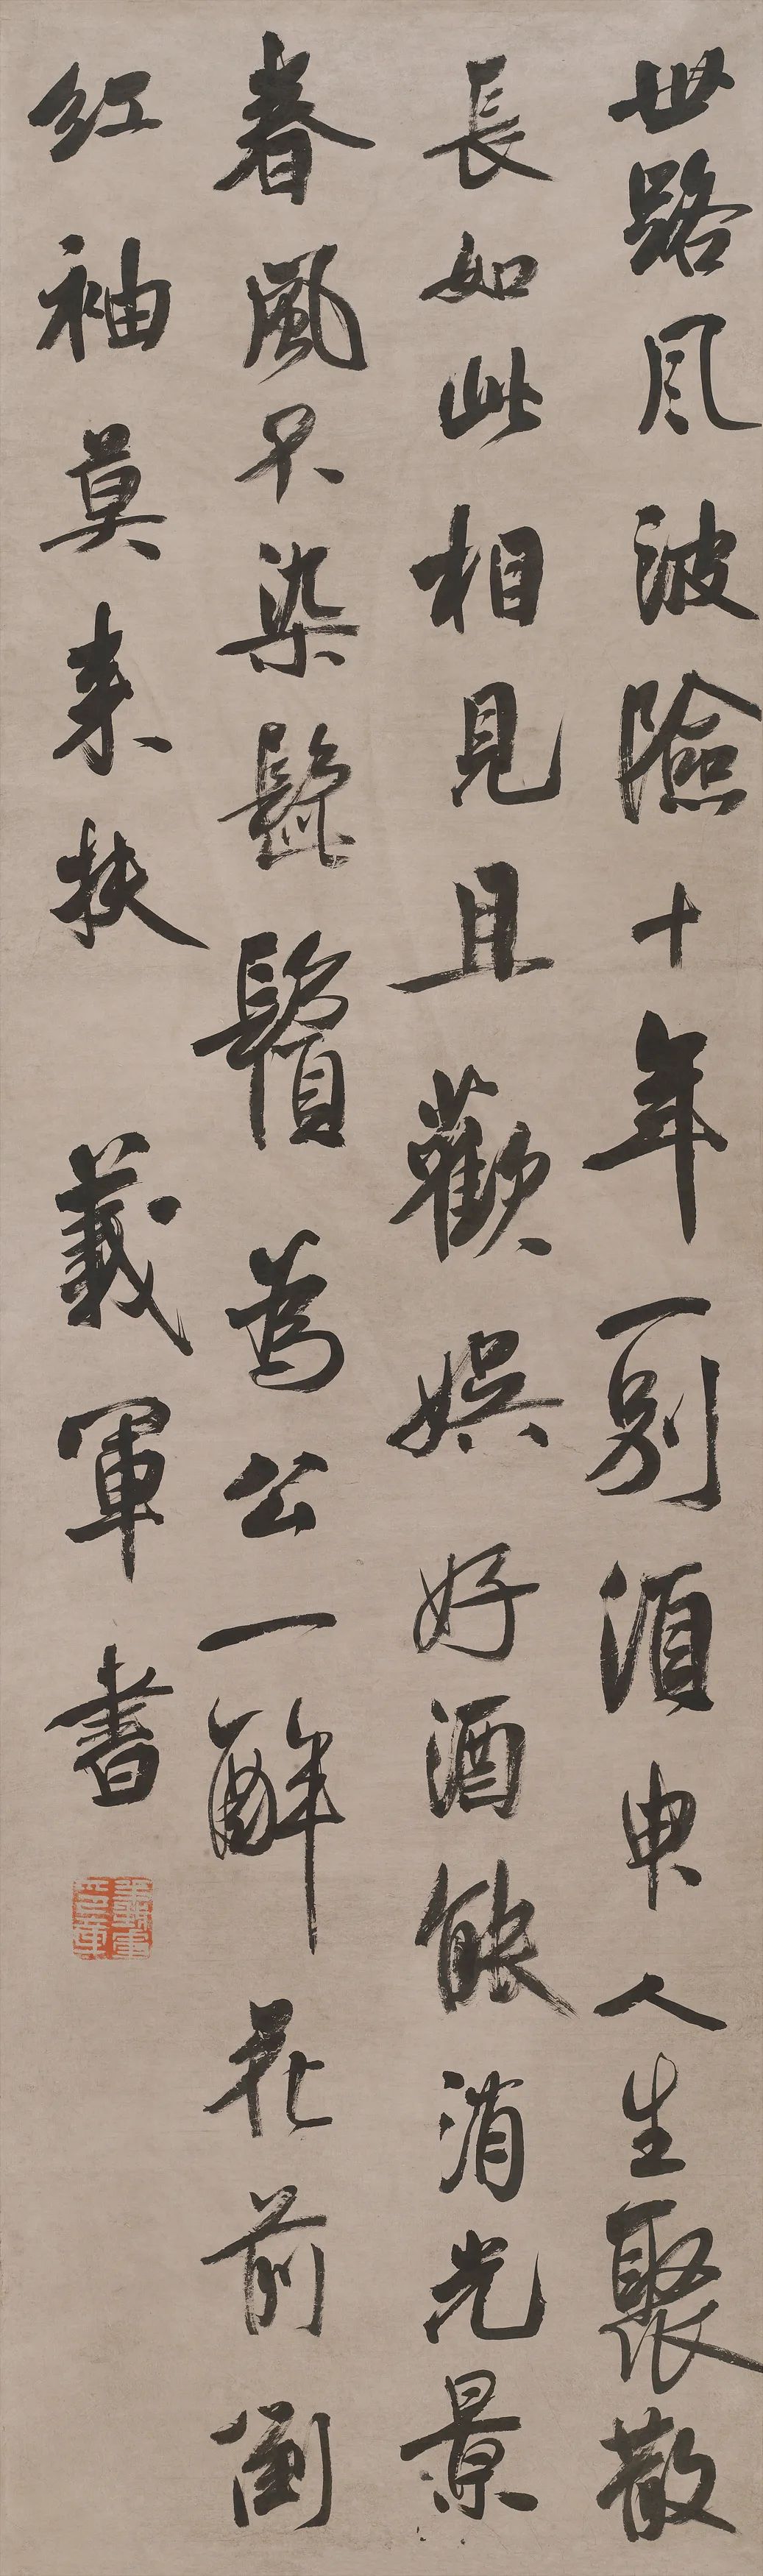 世路风波險十年一別須臾人生聚散
長如此相見且歡娛好酒能消光景
春風不染髭鬚為公一酔花前倒
紅袖莫来扶 義軍書